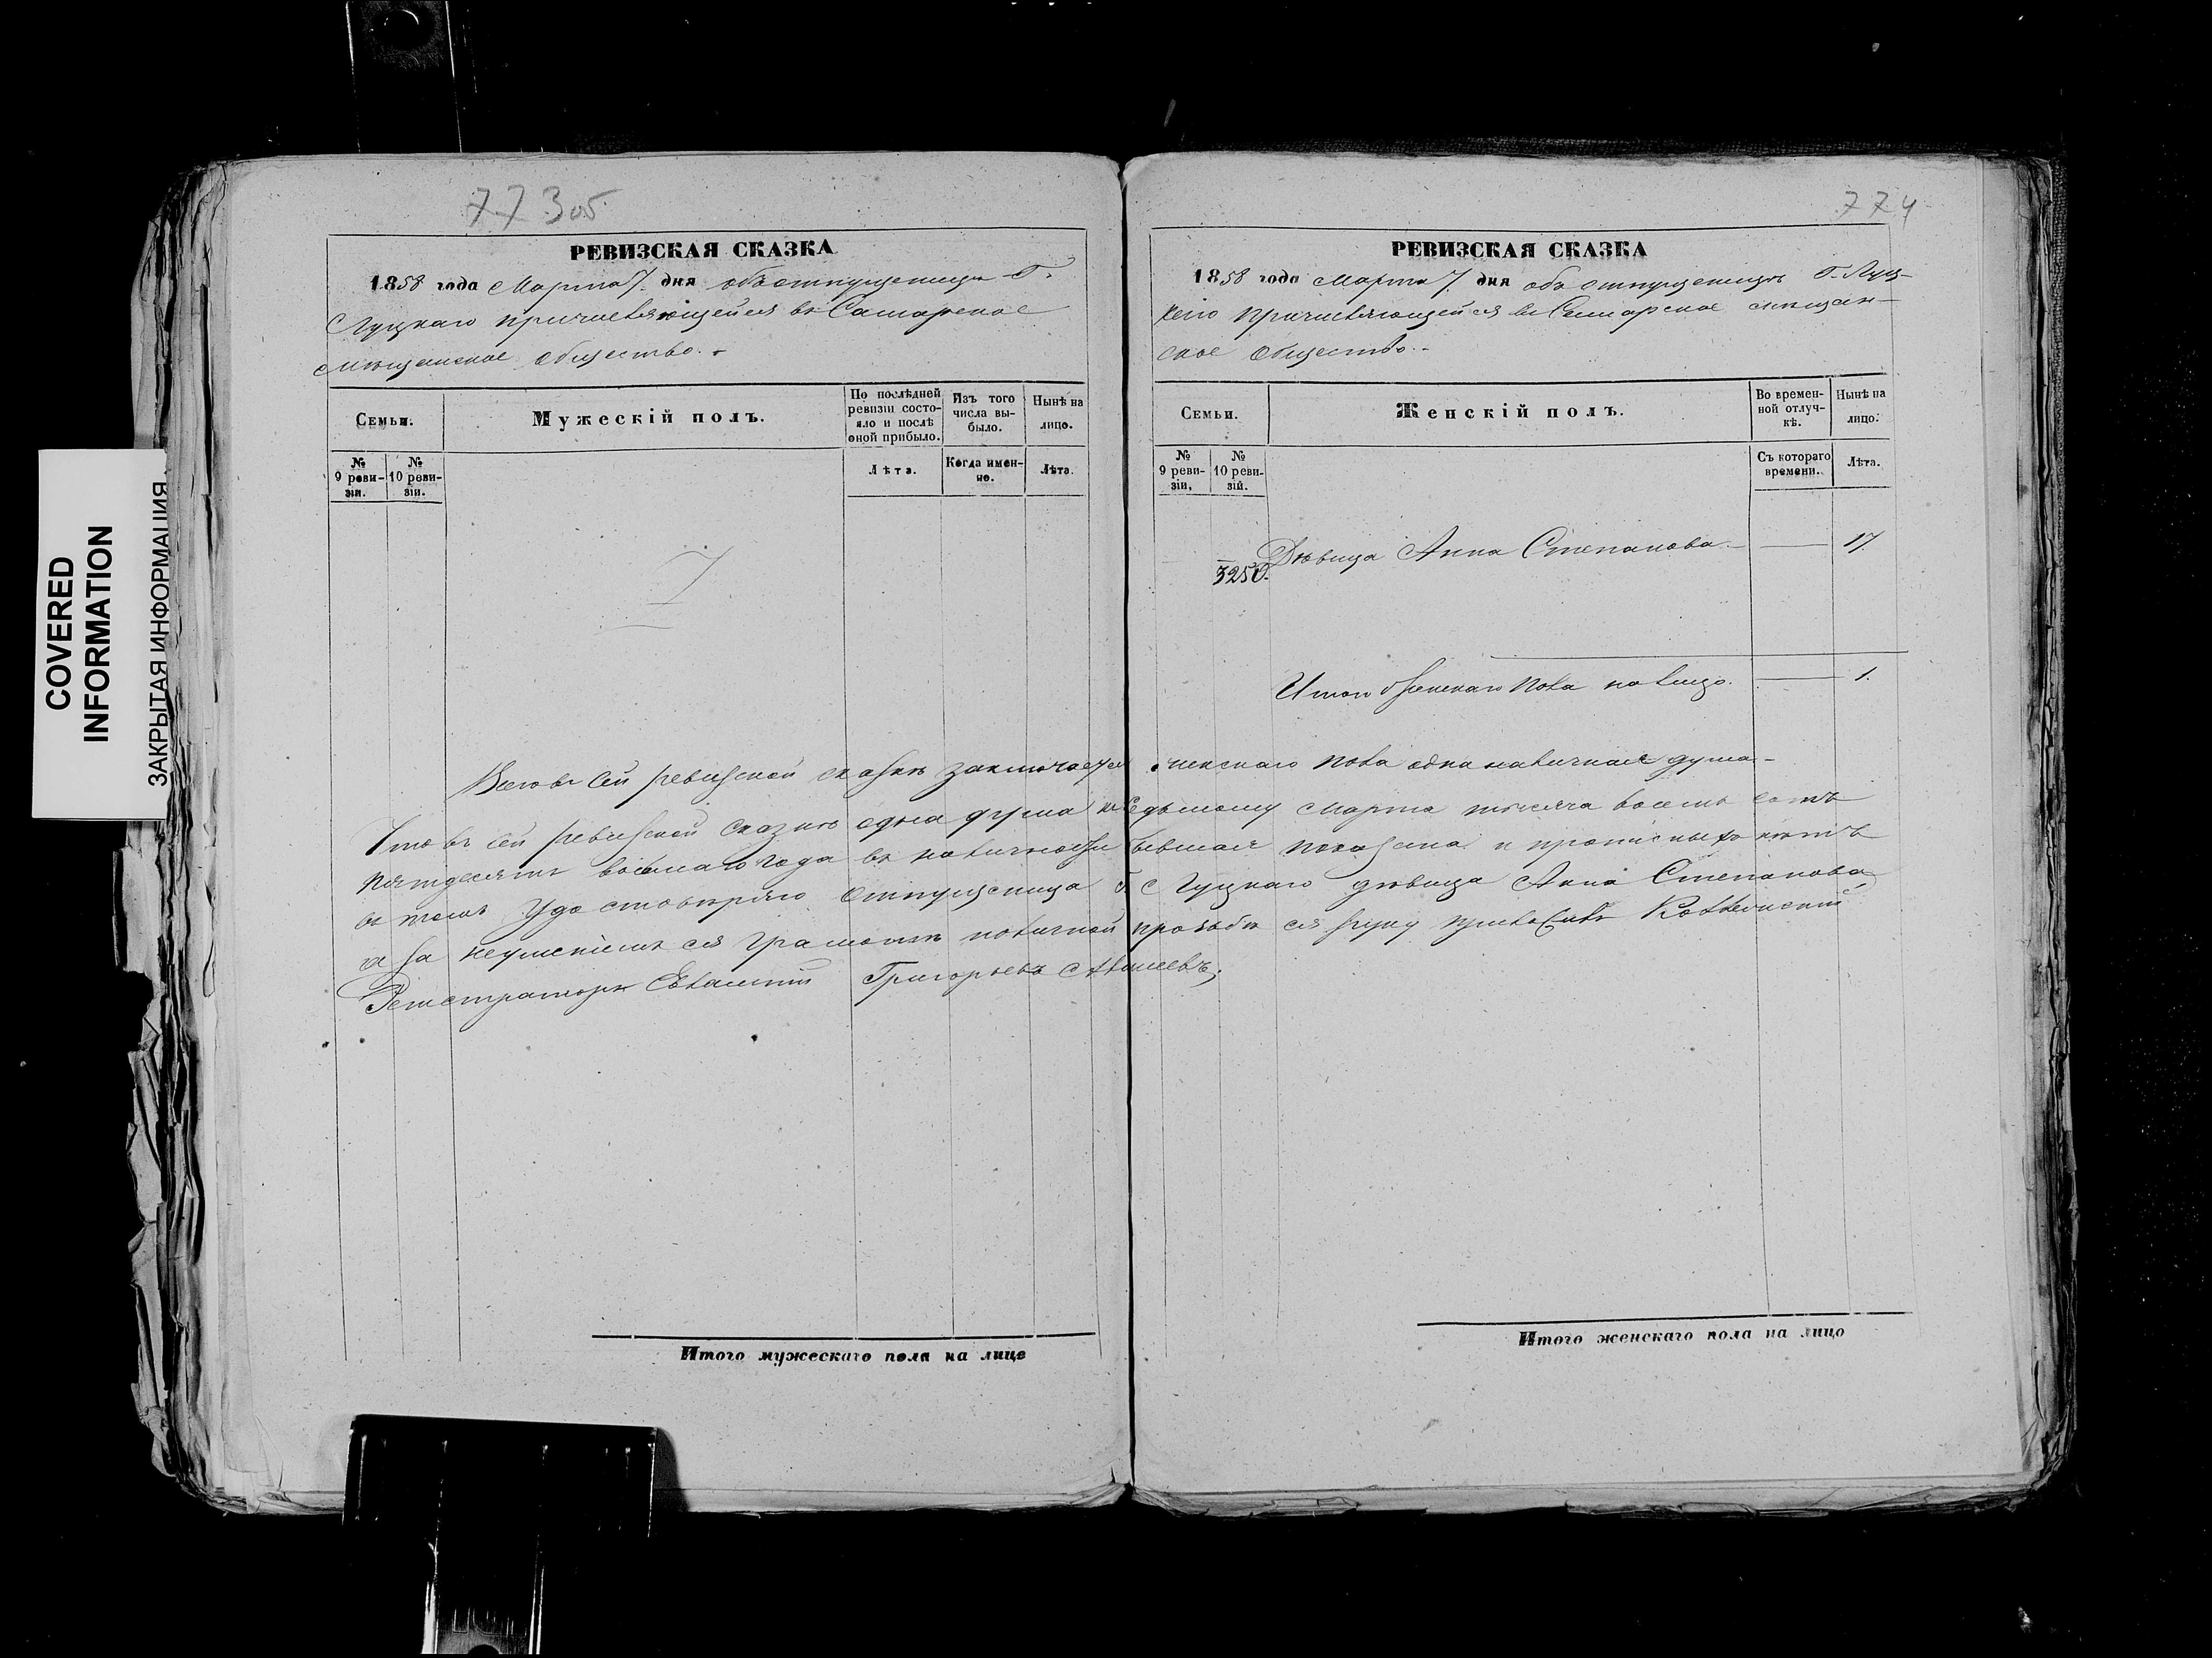 COVERED
INFORMATION
ЗАКРЫТАЯ ИНФОРМАЦИЯ
773об
РЕВИЗСКАЯ СКАЗКА
1858 года Марта 7. дня объ отпущеницѣ Г.
Луцкаго причисляющейся въ Самарское
мѣщанское общество.
Семьи.
Мужескій полъ.
По послѣдней ревизіи состояло и послѣ оной прибыло.
Изъ того числа выбыло.
Нынѣ на лицо.
№ 9 ревизіи.
№ 10 ревизіи.
Лѣта.
Когда именно.
Лѣта.
774
РЕВИЗСКАЯ СКАЗКА
1858 года Марта 7. дня объ отпущеницѣ Г. Луц-
каго причисляющейся въ Самарское мѣщан-
ское общество.
Семьи.
Женскій полъ.
Во временной отлучкѣ.
Нынѣ на лицо.
№ 9 ревизіи,
№ 10 ревизій.
Съ котораго времени.
Лѣта.
3250. Дѣвица Анна Степанова. — 17.
Итого женскаго пола на лицо. — 1.
Всего въ сей ревизской сказкѣ заключается женскаго пола одна наличная душа.
Что въ сей ревизской сказкѣ одна душа къ седьмому Марта тысяча восемь сотъ
пятдесятъ восьмаго года въ наличности бывшая показана и прописныхъ нѣтъ
въ томъ удостовѣряю отпущеница Г. Луцкаго дѣвица Анна Степанова,
а за неумѣніемъ ея грамотѣ по личной прозьбѣ ея руку приложилъ Коллежскій
Регистраторъ Евлампій Григорьевъ
Итого мужескаго пола на лице
Итого женскаго пола на лицо